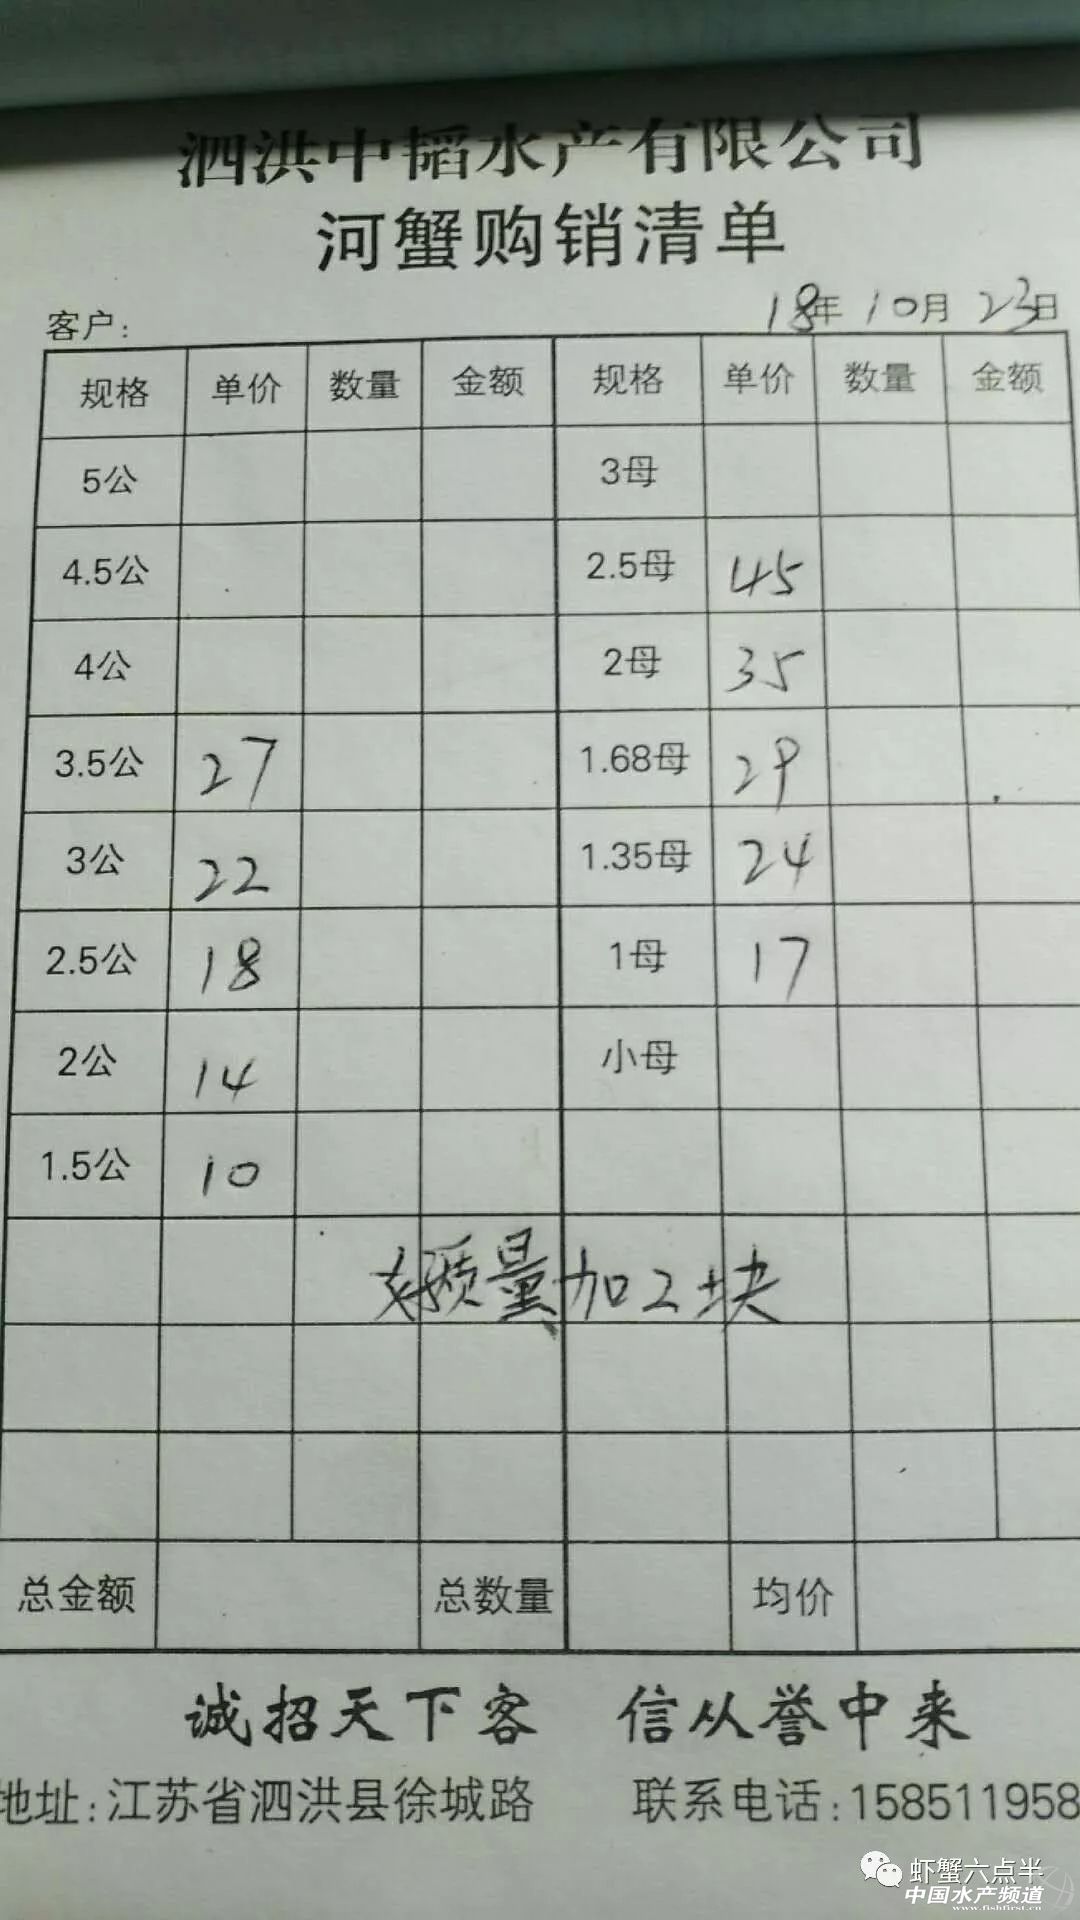 泗洪中韬水产有限公司
河蟹购销清单
客户: 18年 10月 23日
规格 单价 数量 金额 规格 单价 数量 金额
5公 3母
4.5公 2.5母 45
4公 2母 35
3.5公 27 1.68母 29
3公 22 1.35母 24
2.5公 18 1母 17
2公 14 小母
1.5公 10
好质量加2块
总金额 总数量 均价
诚招天下客 信从誉中来
地址:江苏省泗洪县徐城路 联系电话:158511958
虾蟹六点半
中国水产频道
www.fishfirst.cn